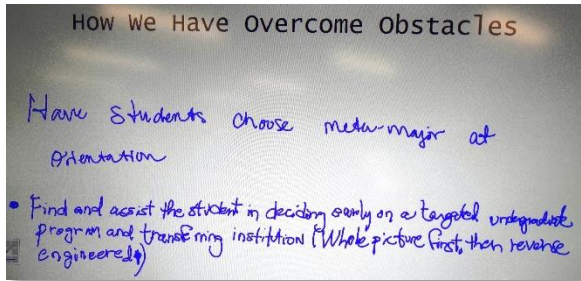 How We Have Overcome Obstacles
Have students choose meta-major at
orientation
• Find and assist the student in deciding early on a targeted undergraduate
program and transferring institution (Whole picture first, then reverse
engineered)